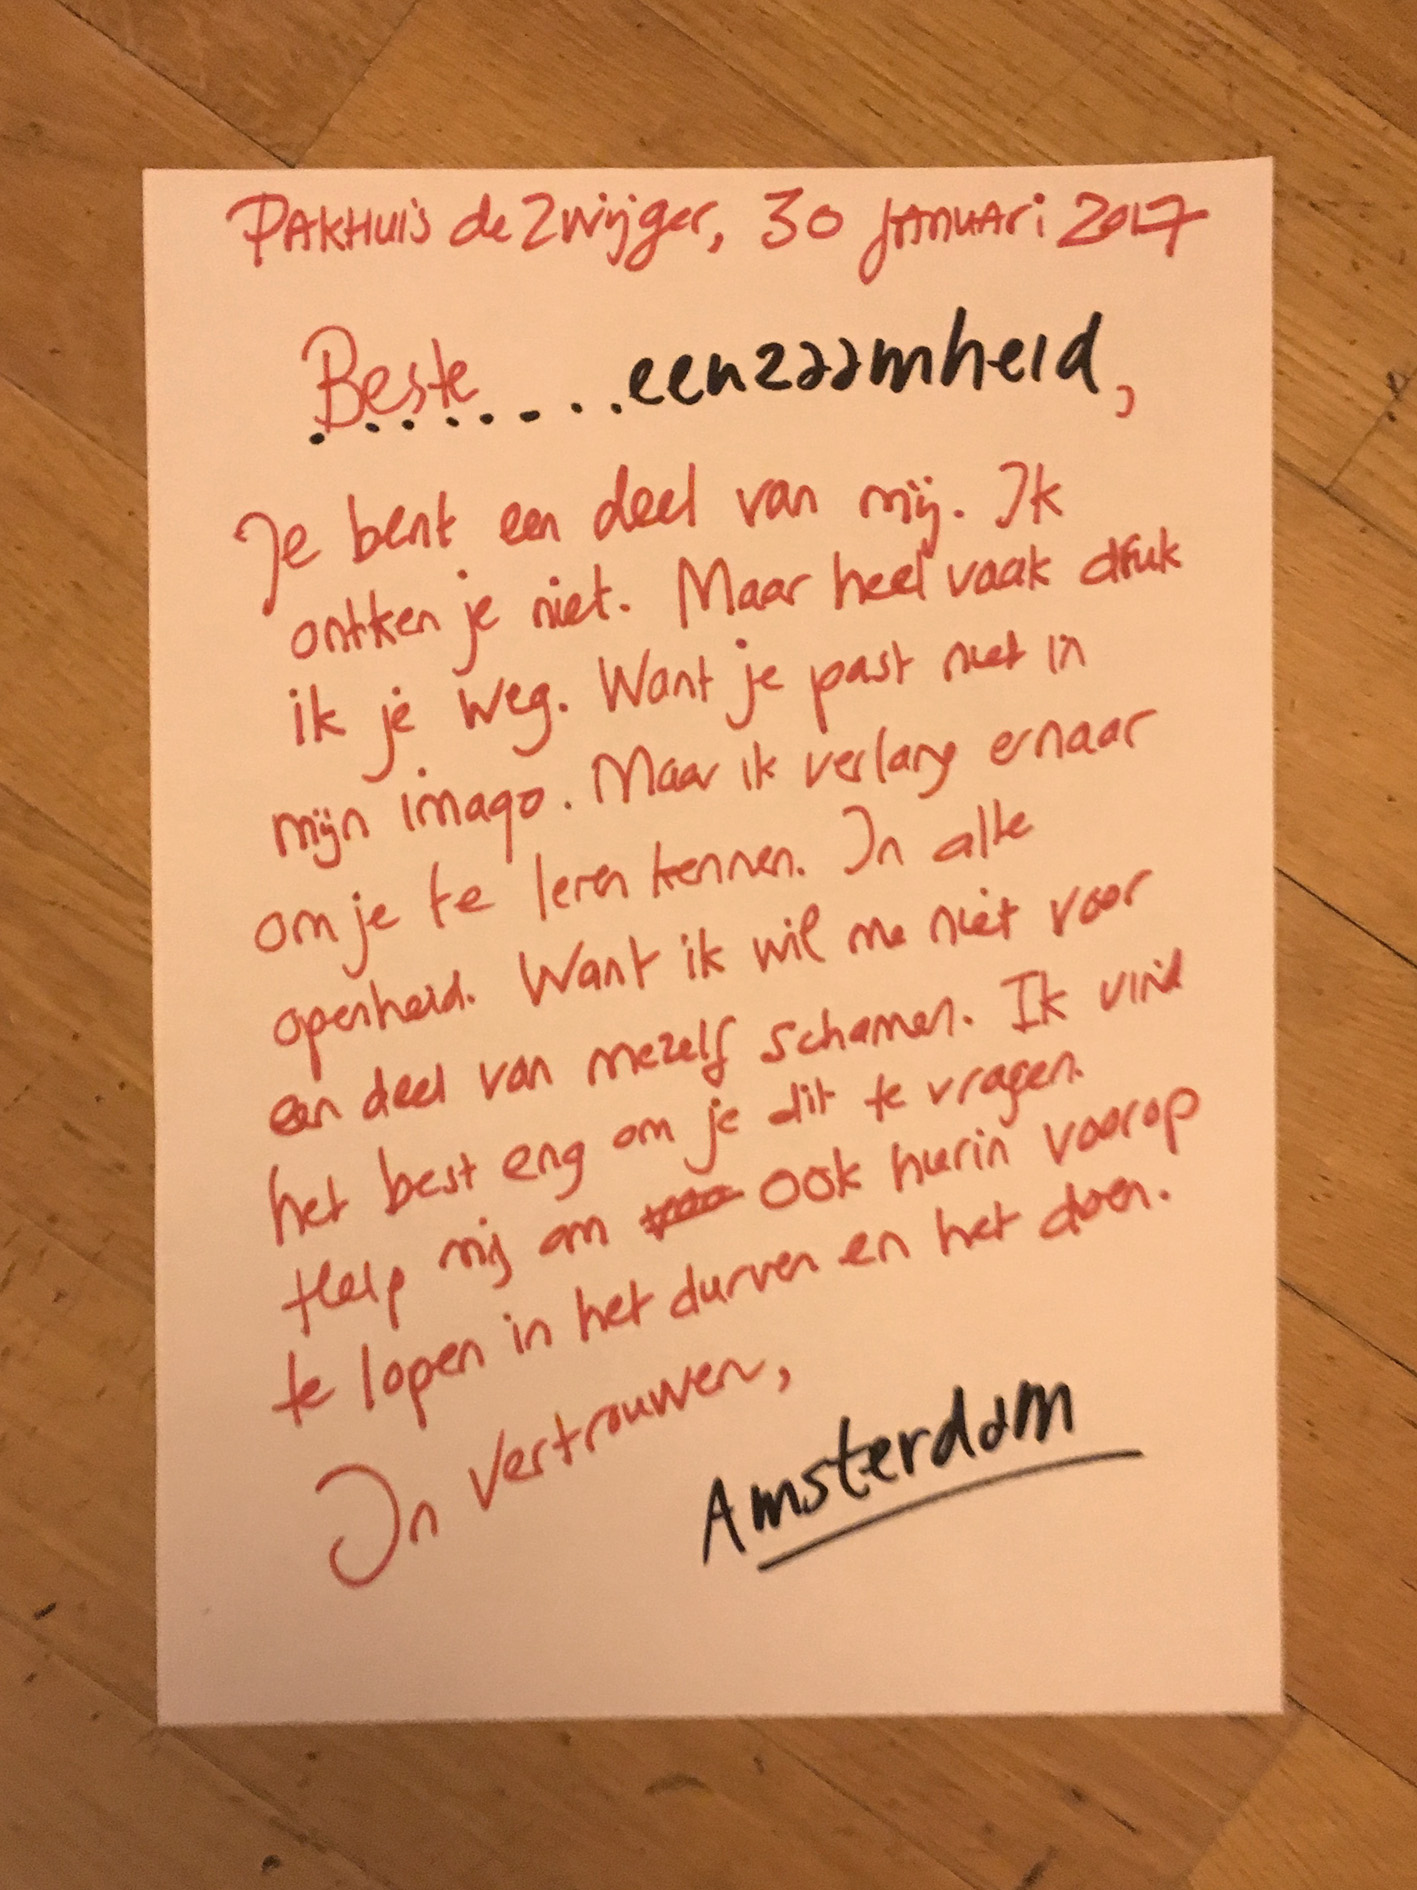 Pakhuis de Zwijger, 30 januari 2017
Beste ........eenzaamheid,
Je bent een deel van mij. Ik
ontken je niet. Maar heel vaak druk
ik je weg. Want je past niet in
mijn imago. Maar ik verlang ernaar
om je te leren kennen. In alle
openheid. Want ik wil me niet voor
een deel van mezelf schamen. Ik vind
het best eng om je dit te vragen.
Help mij om ook hierin voorop
te lopen in het durven en het doen.
In vertrouwen,
Amsterdam